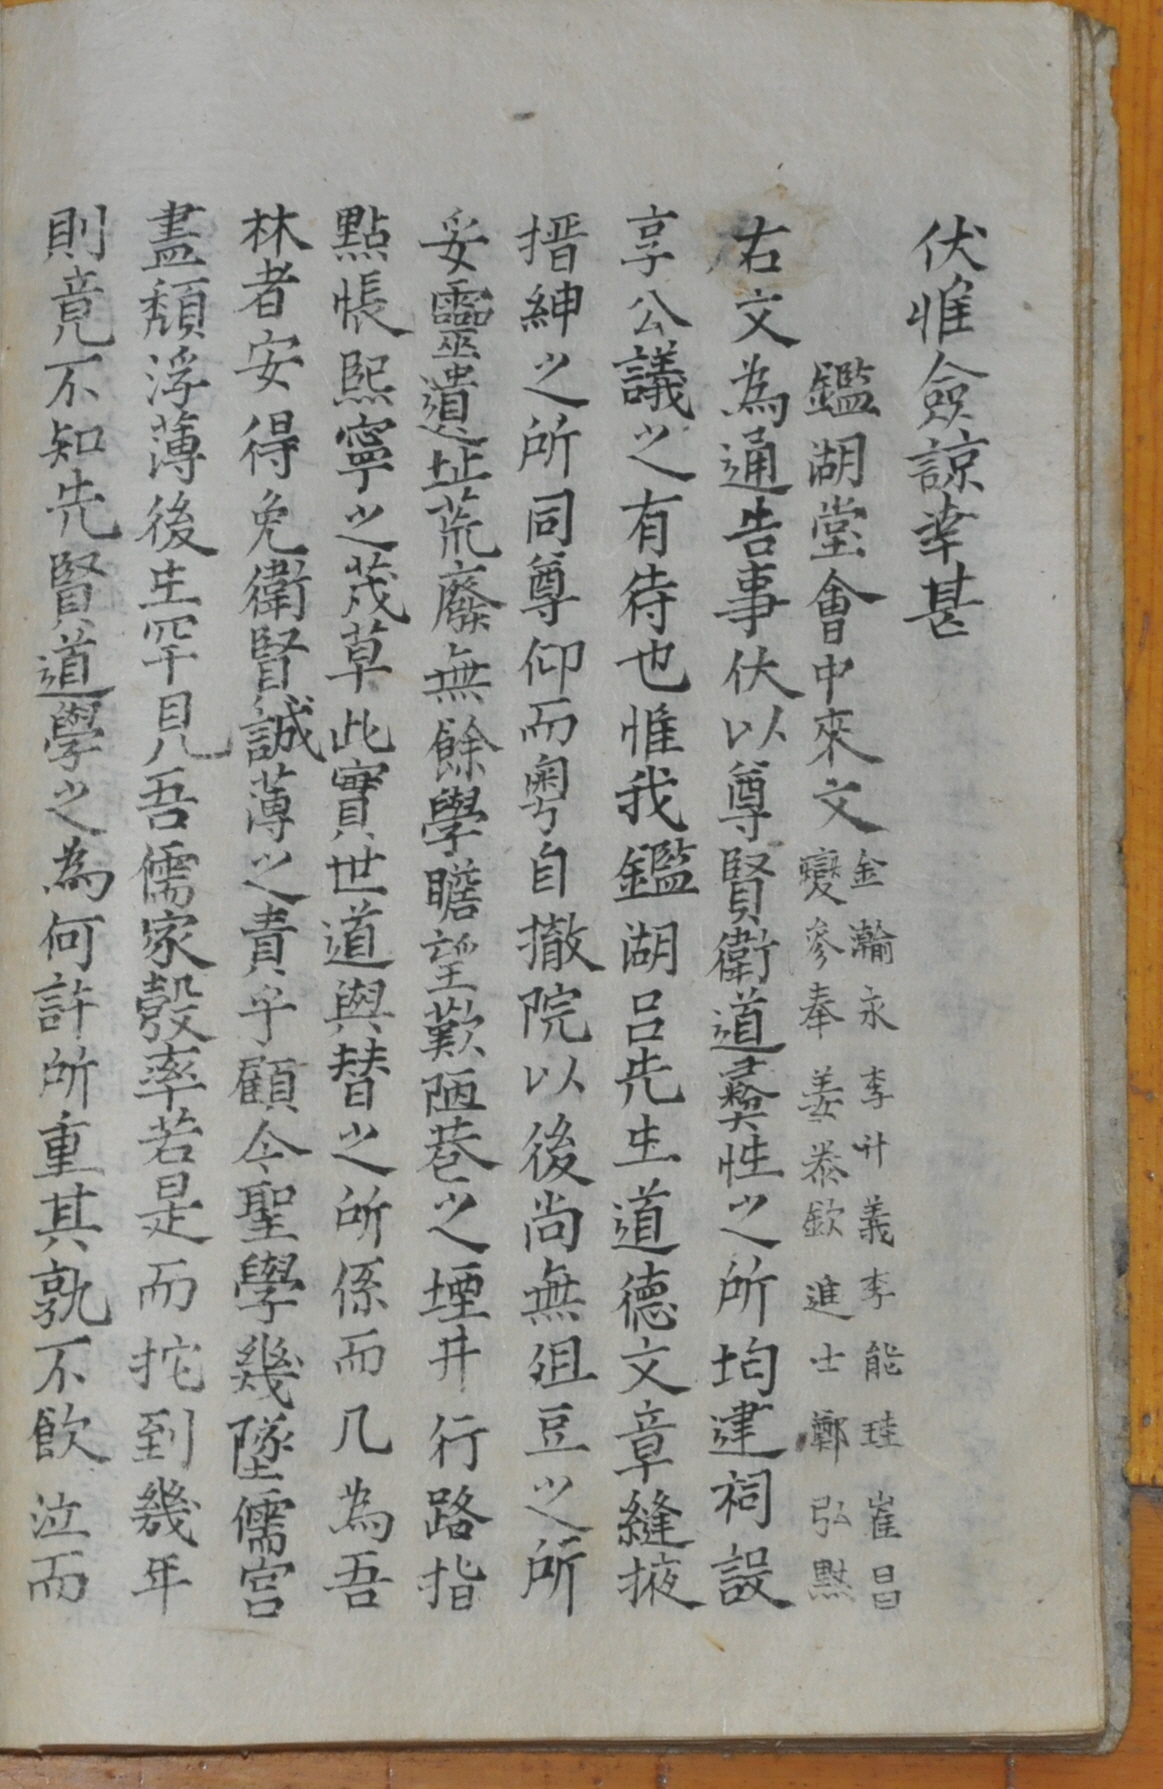 伏惟僉諒幸甚
鑑湖堂會中來文 金瀚永 李叶義 李能珪 崔昌
燮 參奉姜泰欽 進士鄭弘默
右文為通告事伏以尊賢衛道彛性之所均建祠設
享公議之有待也惟我鑑湖呂先生道德文章縫掖
搢紳之所同尊仰而粤自撤院以後尚無俎豆之所
妥靈遺址荒廢無餘學瞻望歎陋巷之堙井行路指
點悵熙寧之茂草此實世道與替之所係而凡為吾
林者安得免衛賢誠薄之責乎顧今聖學幾墜儒宮
盡頹浮薄後生罕見吾儒家彀率若是而拕到幾年
則竟不知先賢道學之為何許所重其孰不飮泣而